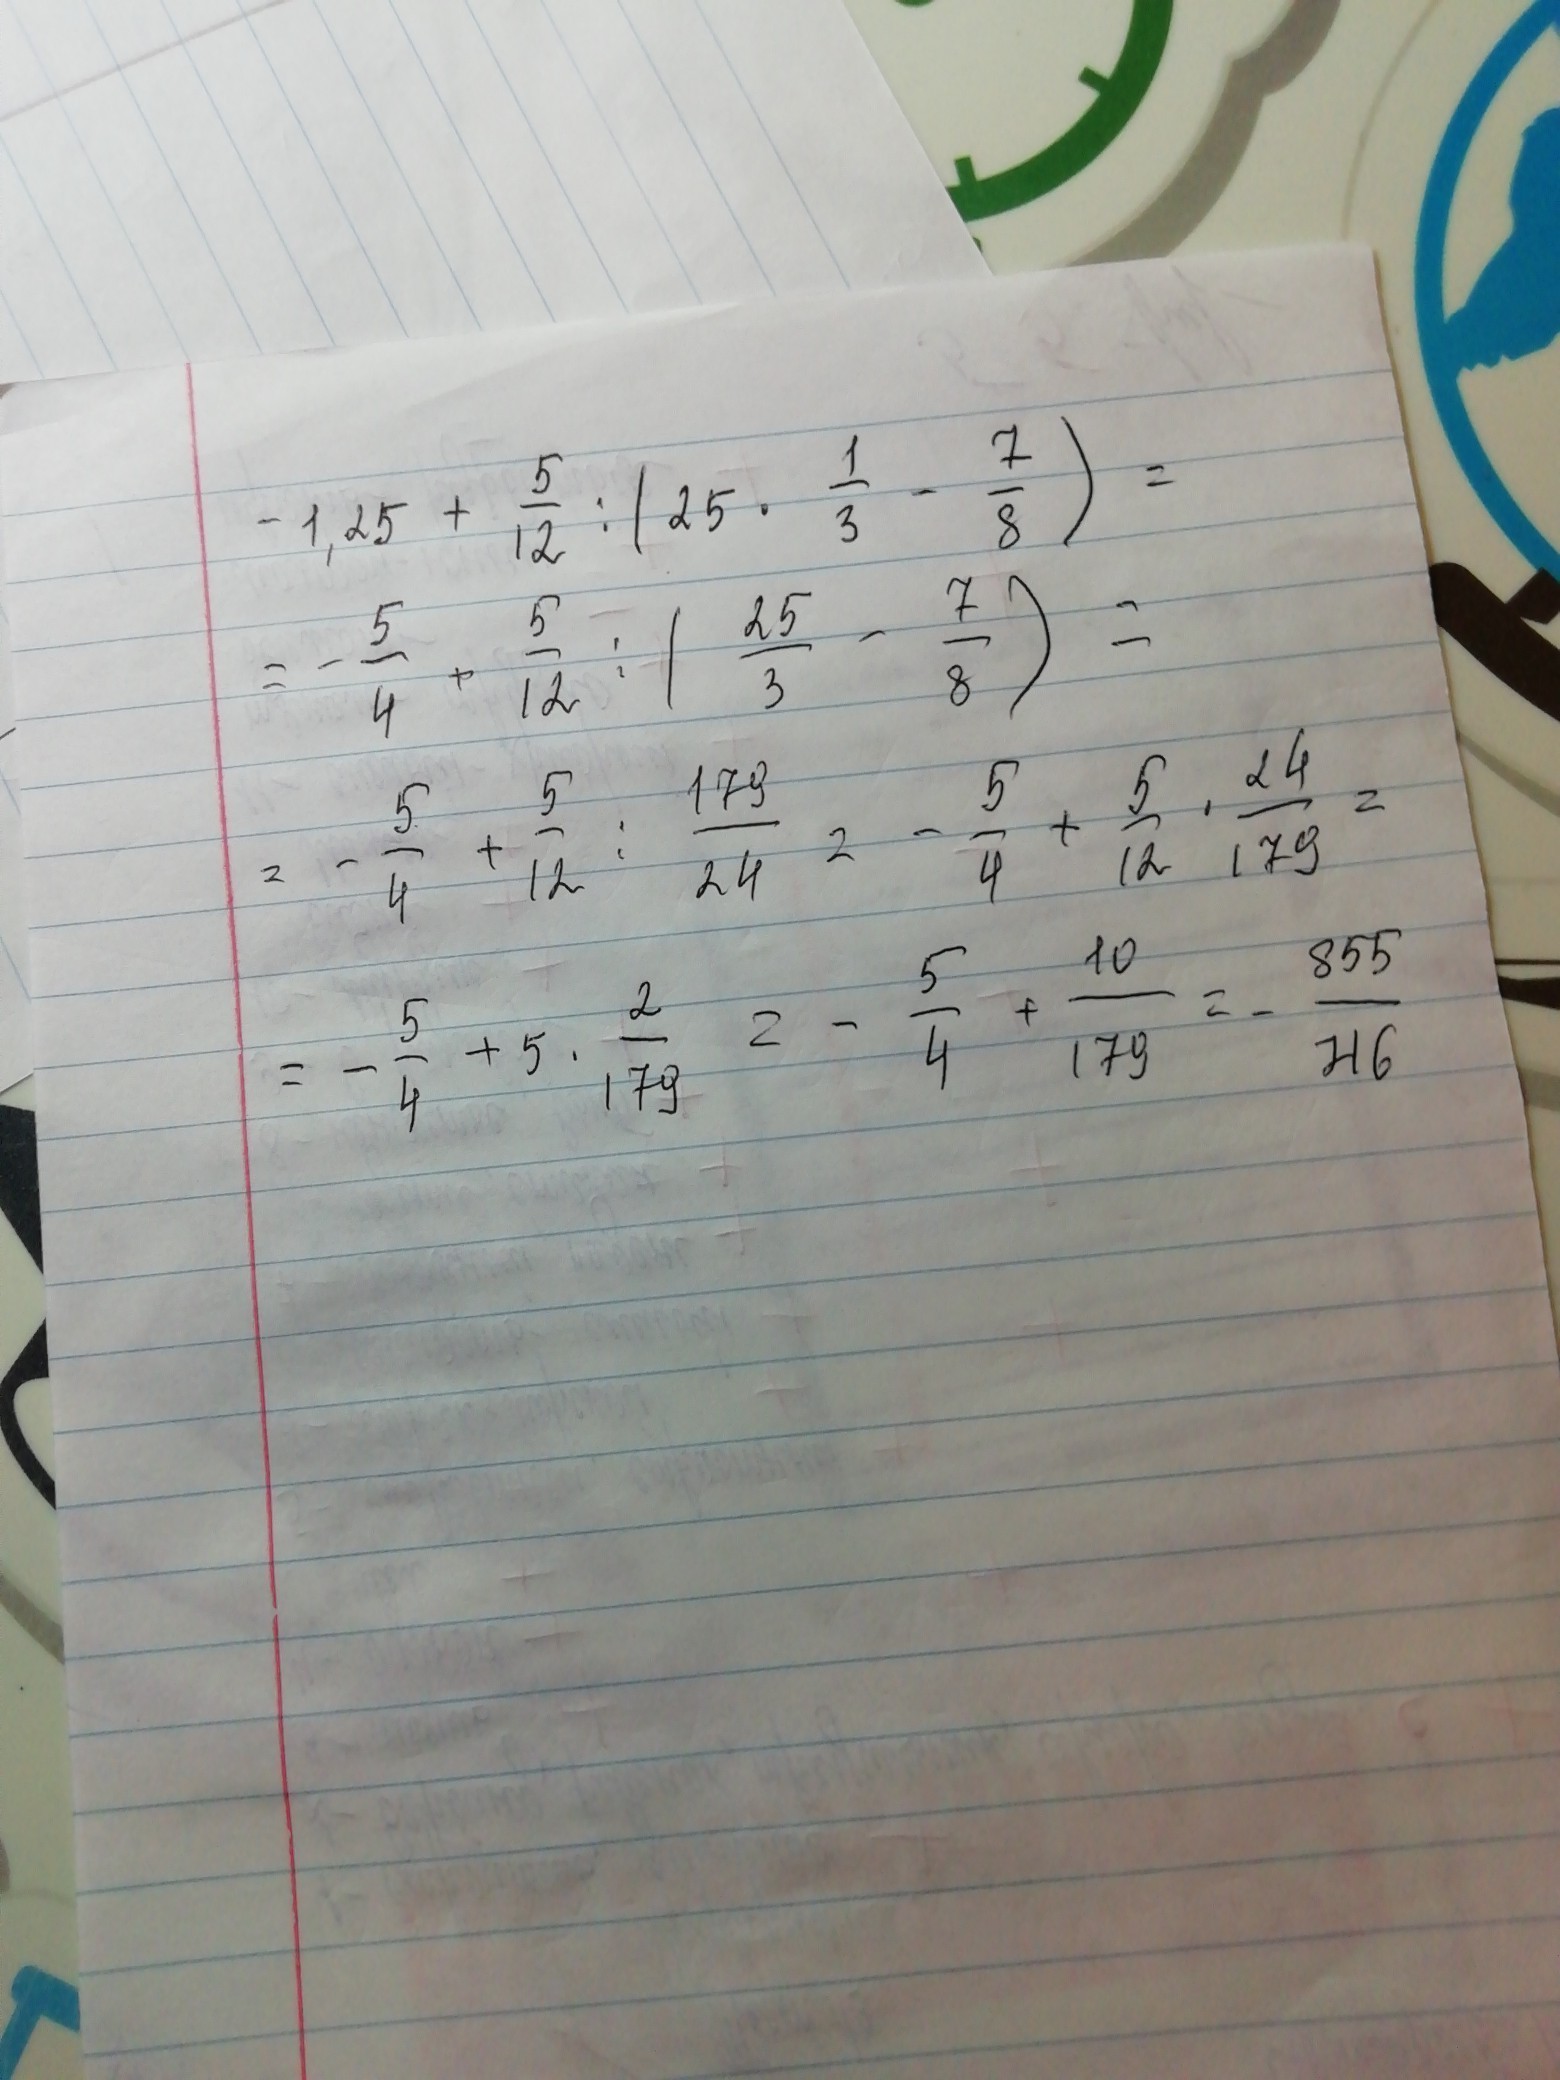 - 1,25 + 5/12 : ( 25 · 1/3 - 7/8 ) =
= - 5/4 + 5/12 : ( 25/3 - 7/8 ) =
= - 5/4 + 5/12 : 179/24 = - 5/4 + 5/12 · 24/179 =
= - 5/4 + 5 · 2/179 = - 5/4 + 10/179 = - 855/716